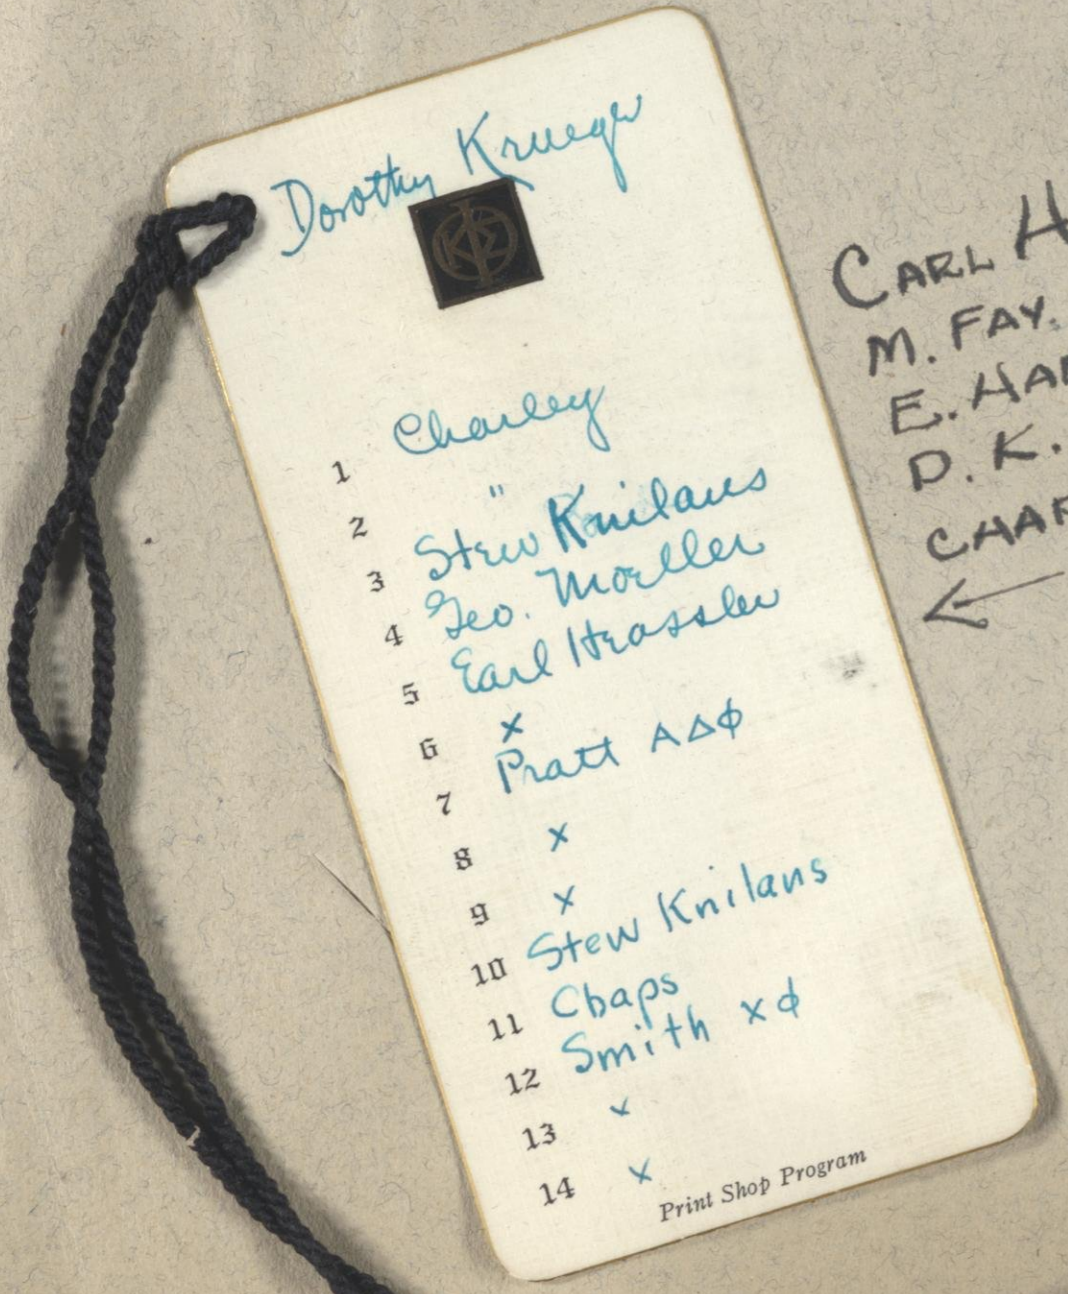 Dorothy Krueger
Charley
1
"
2
Stew Knilans
3
Geo. Moeller
4
Earl
5
x
6
Pratt ΑΔΦ
7
x
8
x
9
Stew Knilans
10
Chaps
11
Smith x ϕ
12
x
13
x
14
Print Shop Program
CARL H
M. FAY.
E. HA
D. K.
CHAR
←